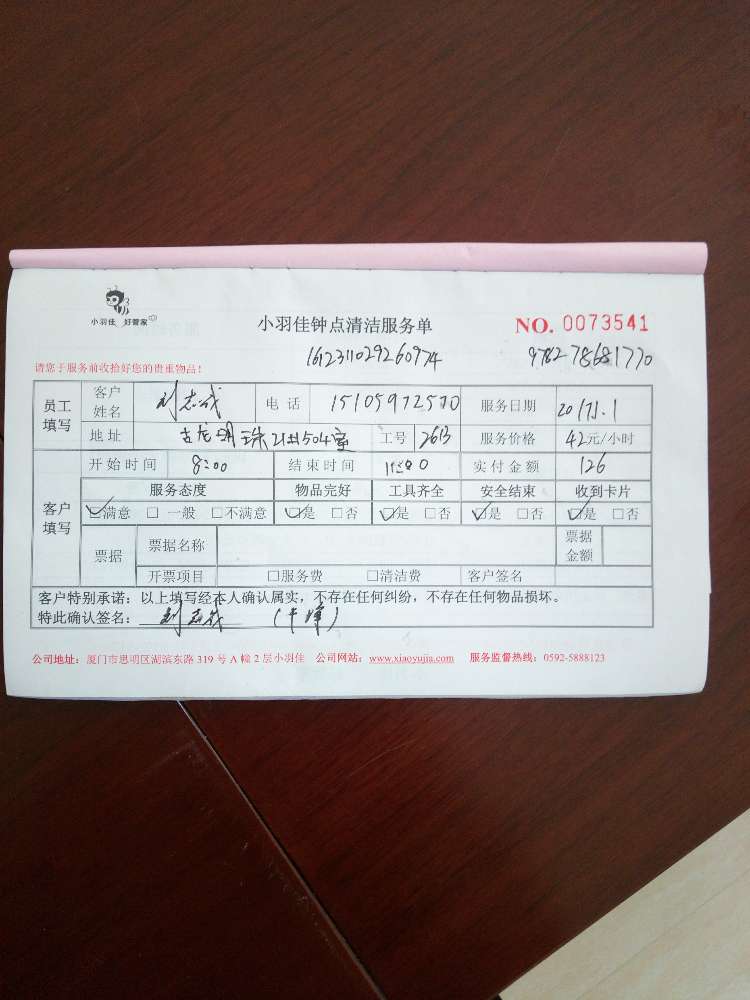 小羽佳 好管家
小羽佳钟点清洁服务单
NO. 0073541
161231029260974
978278681770
请您于服务前收拾好您的贵重物品!
员工填写 客户姓名 刘志成 电话 15105972570 服务日期 2017.1.1
地址 古龙明珠21#504室 工号 2613 服务价格 42元/小时
客户填写 开始时间 8:00 结束时间 11:00 实付金额 126
服务态度 物品完好 工具齐全 安全结束 收到卡片
☑满意 □一般 □不满意 ☑是 □否 ☑是 □否 ☑是 □否 ☑是 □否
票据 票据名称 票据金额
开票项目 □服务费 □清洁费 客户签名
客户特别承诺:以上填写经本人确认属实,不存在任何纠纷,不存在任何物品损坏。
特此确认签名: 刘志成
公司地址:厦门市思明区湖滨东路 319 号 A 幢 2 层小羽佳 公司网站:www.xiaoyujia.com 服务监督热线:0592-5888123